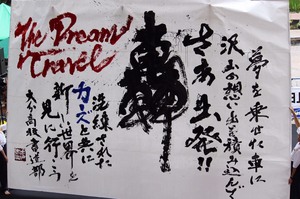 The Dream
Travel
夢を乗せた車に
沢山の想いを積み込んで
さあ出発!!
洗練された
と共に
新しい世界を
見に行こう
大分高校書道部